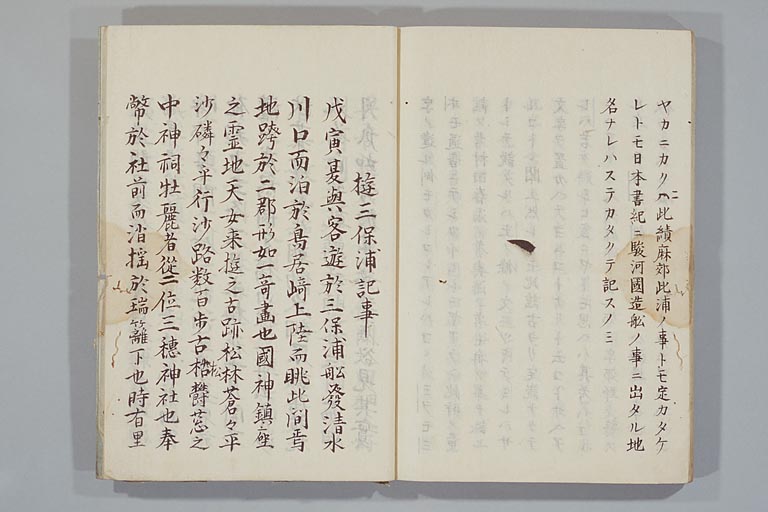 ヤカニカリニハ此績麻郊此浦ノ事トモ定カタケ
レトモ日本書紀ニ駿河國造舩ノ事ニ出タル地
名ナレハステカタクテ記スノミ
遊三保浦記事
戊寅夏與客遊於三保浦舩發清水
川口而泊於鳥居﨑上陸而眺此間焉
地跨於二郡形如一奇畫也國神鎮座
之霊地天女来遊之古跡松林蒼々平
沙磷々平行沙路数百歩古松欝蒼之
中神祠壮麗者従二位三穗神社也奉
幣於社前而逍揺於瑞籬下也時有里